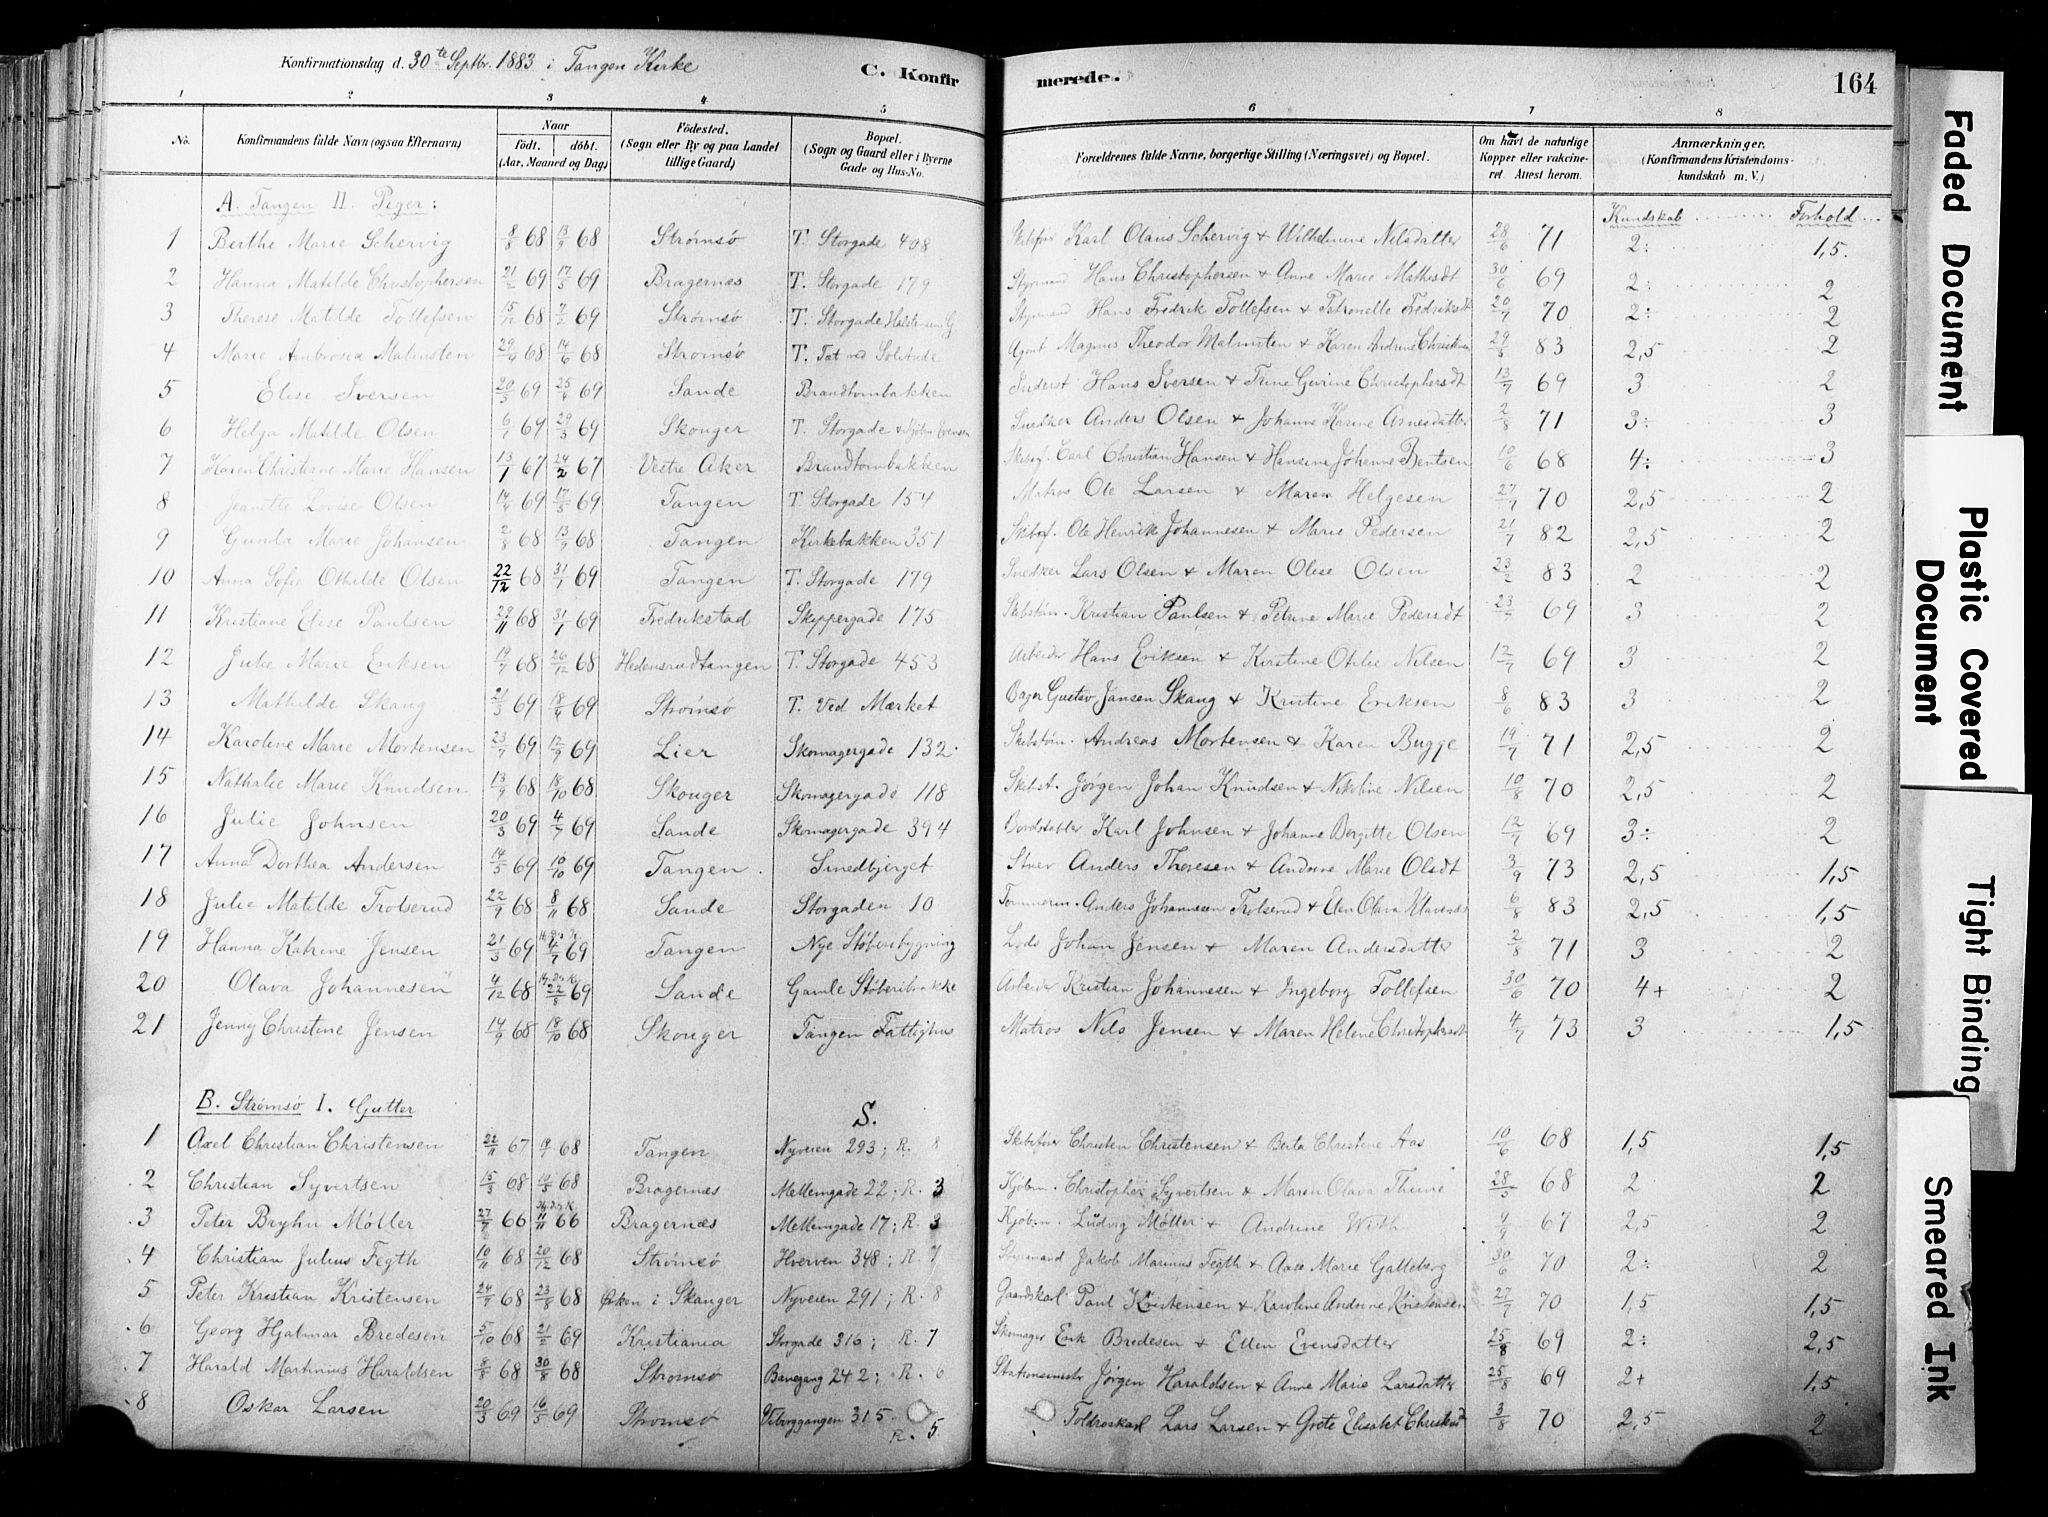 Konfirmationsdag d. 30te Septbr. 1883 i Tangen Kirke
C. Konfirmerede.
164
1 2 3 4 5 6 7 8
No. Konfirmandens fulde Navn (ogsaa Efternavn) Naar født. døbt. (Aar, Maaned og Dag) Födested. (Sogn eller By og paa Landet tillige Gaard) Bopæl. (Sogn og Gaard eller i Byerne Gade og Hus-No. Forældrenes fulde Navne, borgerlige Stilling (Næringsvei) og Bopæl. Om havt de naturlige Kopper eller vakcineret. Attest herom. Anmærkninger. (Konfirmandens Kristendomskundskab m. V.)
A. Tangen II. Peger:
Kundskab Forhold
1 Berthe Marie Schervig 8/8 68 13/9 68 Strømsø T. Storgade 408 Skibsfør Karl Olaus Schervig + Wilhelmine Nilsdatter 28/6 71 2÷ 1,5.
2 Hanna Matilde Christophersen 21/2 69 17/5 69 Bragernæs T. Storgade 179 Styrmand Hans Christophersen + Anne Marie Mathisdt 30/6 69 2÷ 2
3 Therese Matilde Tollefsen 15/12 68 7/2 69 Strømsø T. Storgade Halstensens G Styrmand Hans Fredrik Tollefsen + Petronelle Fredriksdt 20/7 70 2÷ 2
4 Marie Ambrosia Malmsten 29/4 68 14/6 68 Strømsø T. Tæt ved Solstude Agent Magnus Theodor Malmsten + Karen Andrine Christensen 29/5 83 2,5 2
5 Elise Iversen 20/3 69 25/4 69 Sande Brandtombakken Inderst Hans Iversen + Trine Gurine Christophersdt 13/7 69 3 2
6 Helga Matilde Olsen 6/1 69 29/3 69 Skouger T. Storgade Kjøbm Evensen Snedker Anders Olsen + Johanne Karine Arnesdatter 2/8 71 3÷ 3
7 Karen Christiane Marie Hansen 13/1 67 24/2 67 Vestre Aker Brandtombakken Carl Christian Hansen + Hansine Johanne Bentsen 10/6 68 4÷ 3
8 Jeanette Lovise Olsen 14/4 69 17/5 69 Tangen T. Storgade 154 Matros Ole Larsen + Maren Helgesen 27/7 70 2,5 2
9 Gunda Marie Johansen 2/8 68 13/9 68 Tangen Kirkebakken 351 Ole Henrik Johannesen + Marie Pedersen 21/7 82 2,5 2
10 Anna Sofie Othilde Olsen 22/12 68 31/1 69 Tangen T. Storgade 179 Snedker Lars Olsen + Maren Olise Olsen 23/2 83 2 2
11 Kristiane Elise Paulsen 29/11 68 31/1 69 Fredrikstad Skippergade 175 Skibstøm. Kristian Paulsen + Petrine Marie Pedersdt 23/7 69 3 2
12 Julie Marie Eriksen 19/7 68 26/12 68 Hedensrudtangen T. Storgade 453 Arbeider Hans Eriksen + Kirstine Otilie Nilsen 12/7 69 3 2
13 Mathilde Skaug 21/3 69 18/4 69 Strømsø T. Ved Mærket Bager Gustav Jansen Skaug + Kristine Eriksen 8/6 83 3 2
14 Karoline Marie Mortensen 23/7 69 12/9 69 Lier Skomagergade 132. Skibstøm. Andreas Mortensen + Karen Bugge 19/7 71 2,5 2
15 Nathalie Marie Knudsen 13/9 68 18/10 68 Skouger Skomagergade 118 Skibst. Jørgen Johan Knudsen + Nikoline Nilsen 10/8 70 2,5 2
16 Julie Johnsen 20/3 69 4/7 69 Sande Skomagergade 394 Bordstabler Karl Johnsen + Johanne Bergitte Olsen 12/7 69 3÷ 2
17 Anna Dorthea Andersen 14/5 69 10/10 69 Tangen Smedbjerget Stuer Anders Theresen + Andrine Marie Olsdt 3/9 73 2,5 1,5
18 Julie Matilde Trolserud 22/9 68 8/11 68 Sande Storgaden 10 Tømmerm. Anders Johannesen Trolserud + Elen Olava Klavenæs 6/8 83 2,5 1,5
19 Hanna Katrine Jensen 21/3 69 4/7 69 Tangen Nye Støberibygning Lods Johan Jensen + Maren Andersdatter 2/8 71 3 2
20 Olava Johannesen 4/12 68 22/8 69 Sande Gamle Støberibrakke Arbeider Kristian Johannesen + Ingeborg Tollefsen 30/6 70 4+ 2
21 Jenny Christine Jensen 14/9 68 18/10 68 Skouger Tangen Fattighus Matros Nils Jensen + Maren Helene Christophersdt 4/7 73 3 1,5
B. Strømsø I. Gutter
S.
1 Axel Christian Christensen 22/11 67 68 Tangen Nyveien 293; R. 8 Skibsfør Christen Christensen + Berta Christine Aas 10/6 68 1,5 1,5
2 Christian Syvertsen 15/3 68 10/5 68 Bragernæs Mellemgade 22; R. 3 Kjøbm. Christopher Syvertsen + Maren Olava Thime 28/5 68 2 2
3 Peter Bryhn Møller 27/7 66 11/11 66 Bragernæs Mellemgade 17; R. 3 Kjøbm. Ludvig Møller + Andrine Wiith 9/9 67 2,5 2
4 Christian Julius Fegth 10/11 68 20/12 68 Strømsø Hverven 348; R. 7 Styrmand Jakob Marinus Fegth + Aase Marie Galteberg 30/6 70 2÷ 2
5 Peter Kristian Kristensen 24/7 68 23/8 68 Ørken i Skauger Nyveien 291; R. 8 Gaardskarl Paul Kristensen + Karoline Andrine Kristensen 27/7 70 1,5 1,5
6 Georg Hjalmar Bredesen 5/10 68 21/2 69 Kristiania Storgade 316; R. 7 Skomager Erik Bredesen + Ellen Evensdatter 25/8 69 2÷ 2,5
7 Harald Martinius Haraldsen 8/8 68 30/8 68 Strømsø Banegang 242; R. 6 Stationsmester Jørgen Haraldsen + Anne Marie Larsdatter 25/8 69 2+ 1,5
8 Oskar Larsen 20/3 69 16/5 69 Strømsø Viborggangen 315 R. 5 Toldroskarl Lars Larsen + Grete Elisabet Christensdt 3/8 70 2,5 2
Faded Document
Plastic Covered Document
Tight Binding
Smeared Ink